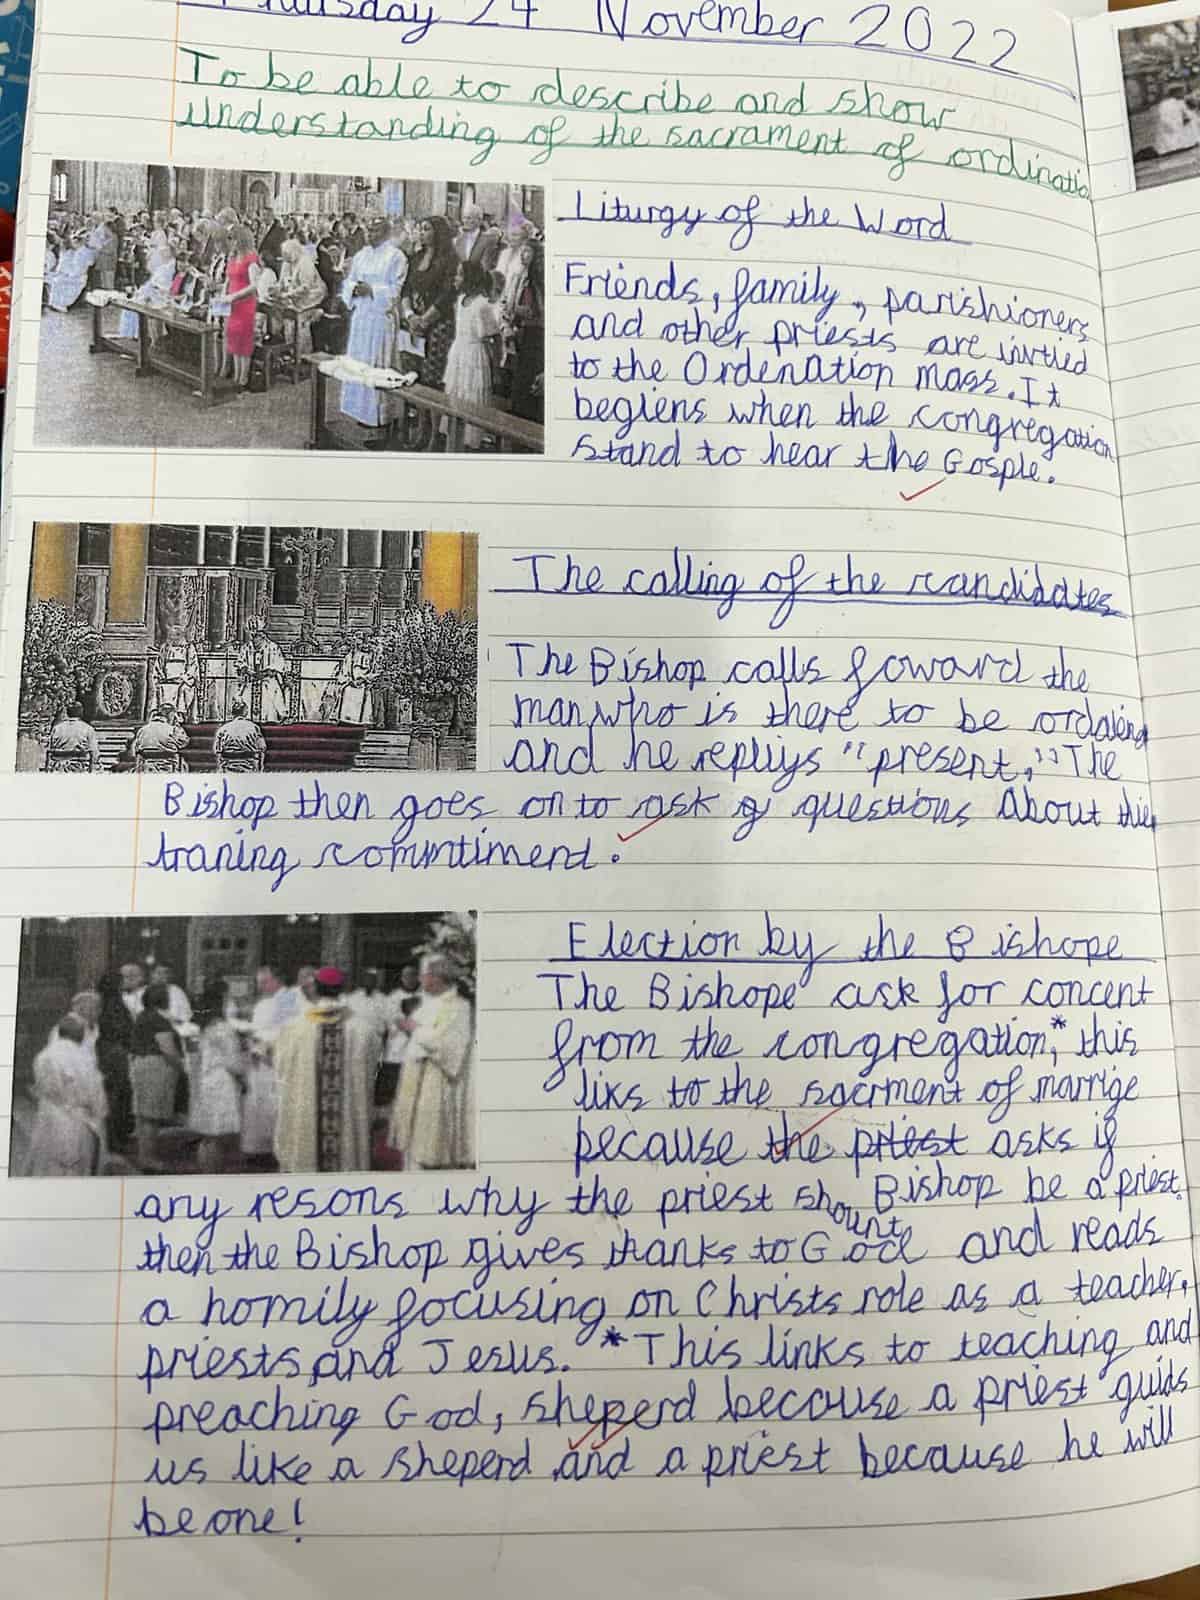 Thursday 24 November 2022
To be able to describe and show
understanding of the sacrament of ordinatio
Liturgy of the Word
Friends, family, parishioners
and other priests are invtied
to the Ordenation mass. It
begiens when the congregation
stand to hear the Gosple.
The calling of the candidates
The Bishop calls foward the
man who is there to be ordaiend
and he repliys "present." The
Bishop then goes on to ask q questions about thier
traning commtiment.
Election by the Bishope
The Bishope ask for concent
from the congregation,* this
liks to the sacrment of marrige
because the priest asks if
Bishop
any resons why the priest shount be a priest.
then the Bishop gives thanks to God and reads
a homily focusing on Christs role as a teacher,
priests and Jesus. *This links to teaching and
preaching God, sheperd because a priest guids
us like a sheperd and a priest because he will
be one!